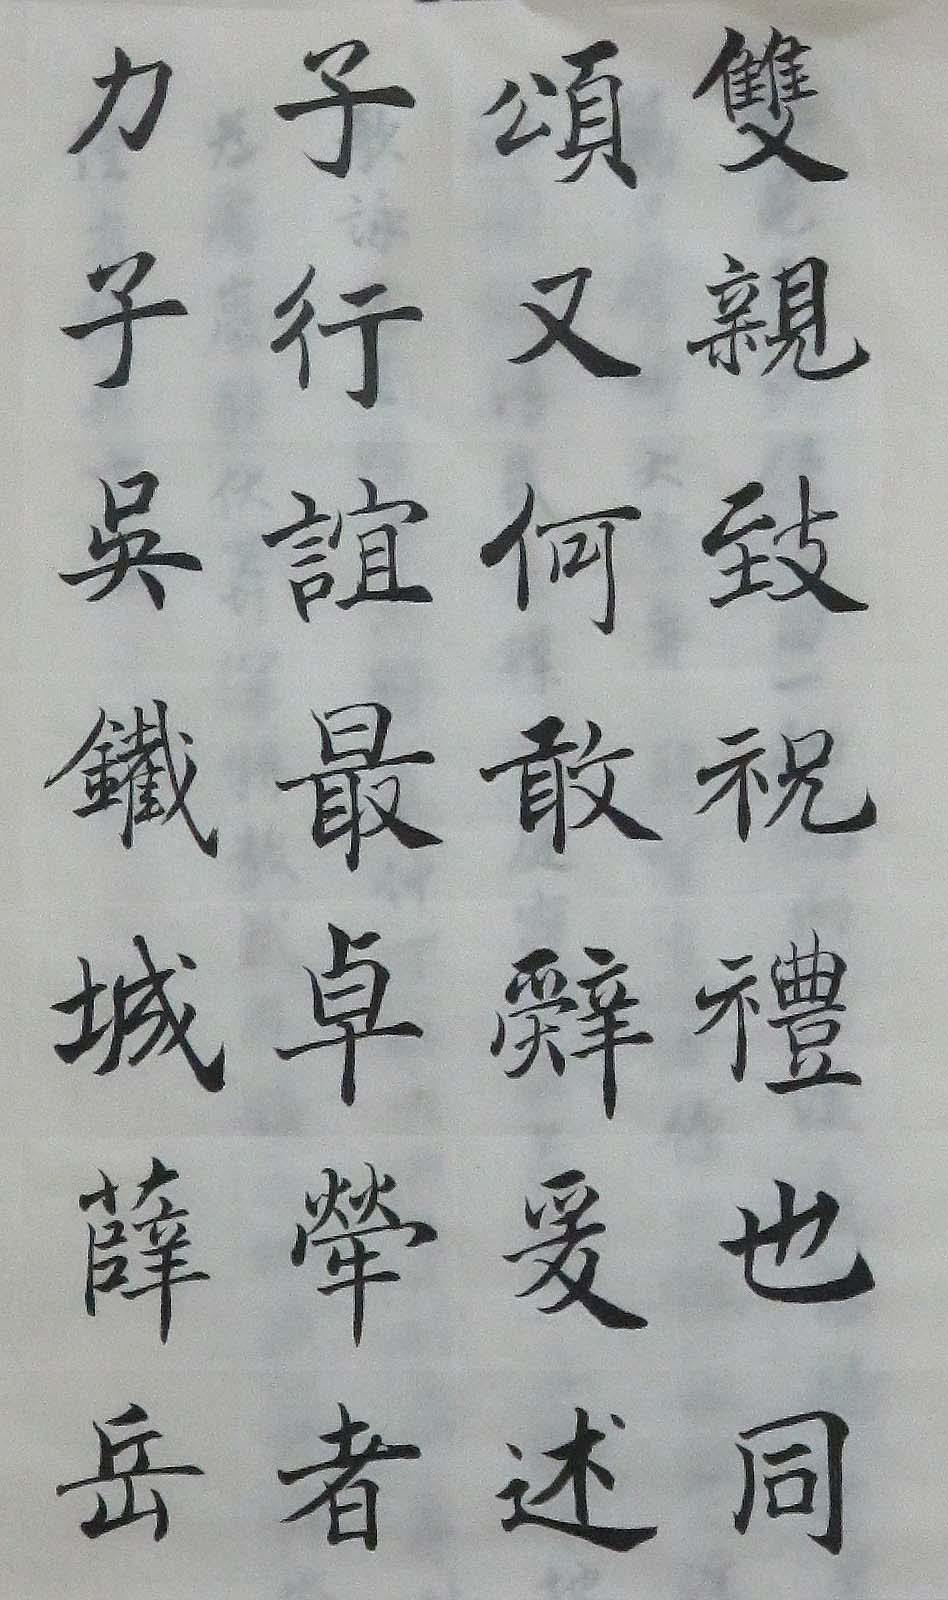 雙親致祝禮也同
頌又何敢辭爰述
子行誼最卓犖者
力子吳鐵城薛岳